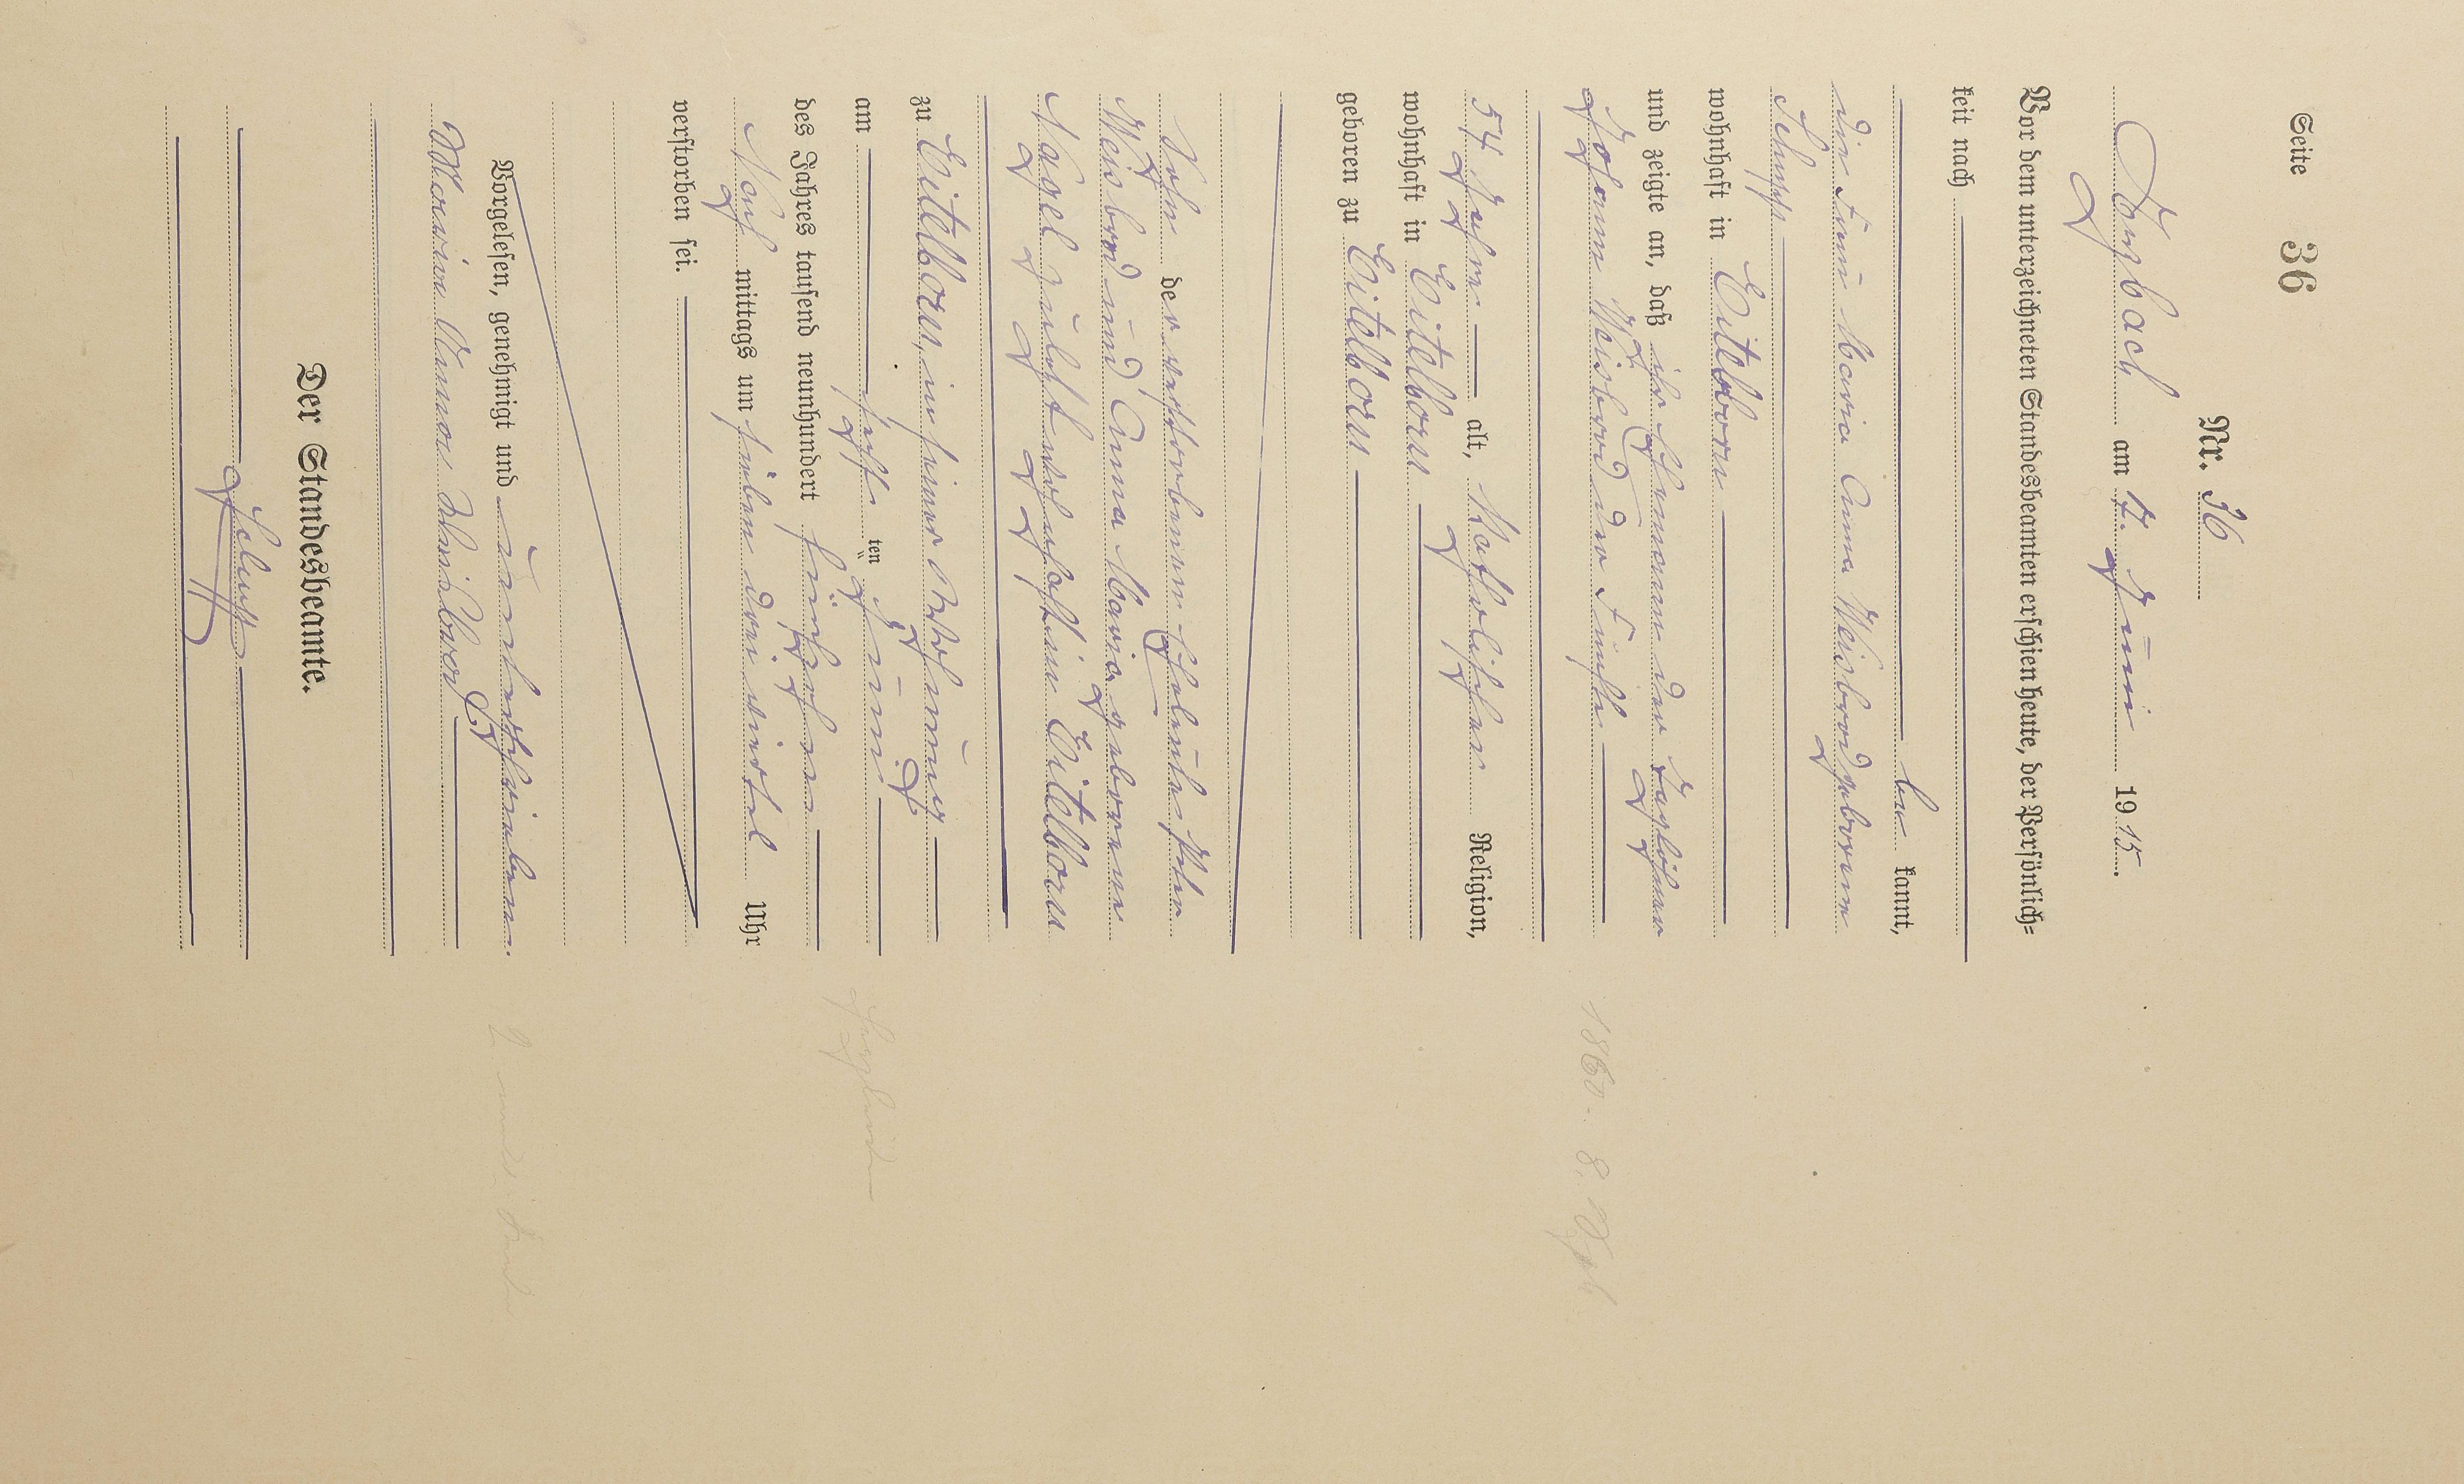 Seite 36
Nr. 36
Arzbach am 7. Juni 1915.
Vor dem unterzeichneten Standesbeamten erschien heute, der Persönlich=
keit nach
be kannt,
die Frau Maria Anna Weisbrod geborene
Schupp
wohnhaft in Eitelborn
und zeigte an, daß ihr Ehemann der Taglöhner
Johann Weisbrod der
54 Jahre alt, Katholischer Religion,
wohnhaft in Eitelborn
geboren zu Eitelborn
Sohn der verstorbenen Eheleute Peter
Weisbrod und Anna Maria geborene
Nagel zuletzt wohnhaft in Eitelborn
zu Eitelborn, in seiner Wohnung
am sechsten Juni
des Jahres tausend neunhundert fünfzehn
Nach mittags um sieben drei viertel Uhr
verstorben sei.
Vorgelesen, genehmigt und unterschrieben.
Maria Anna Weisbrod
Der Standesbeamte.
1860. 8. Sept.